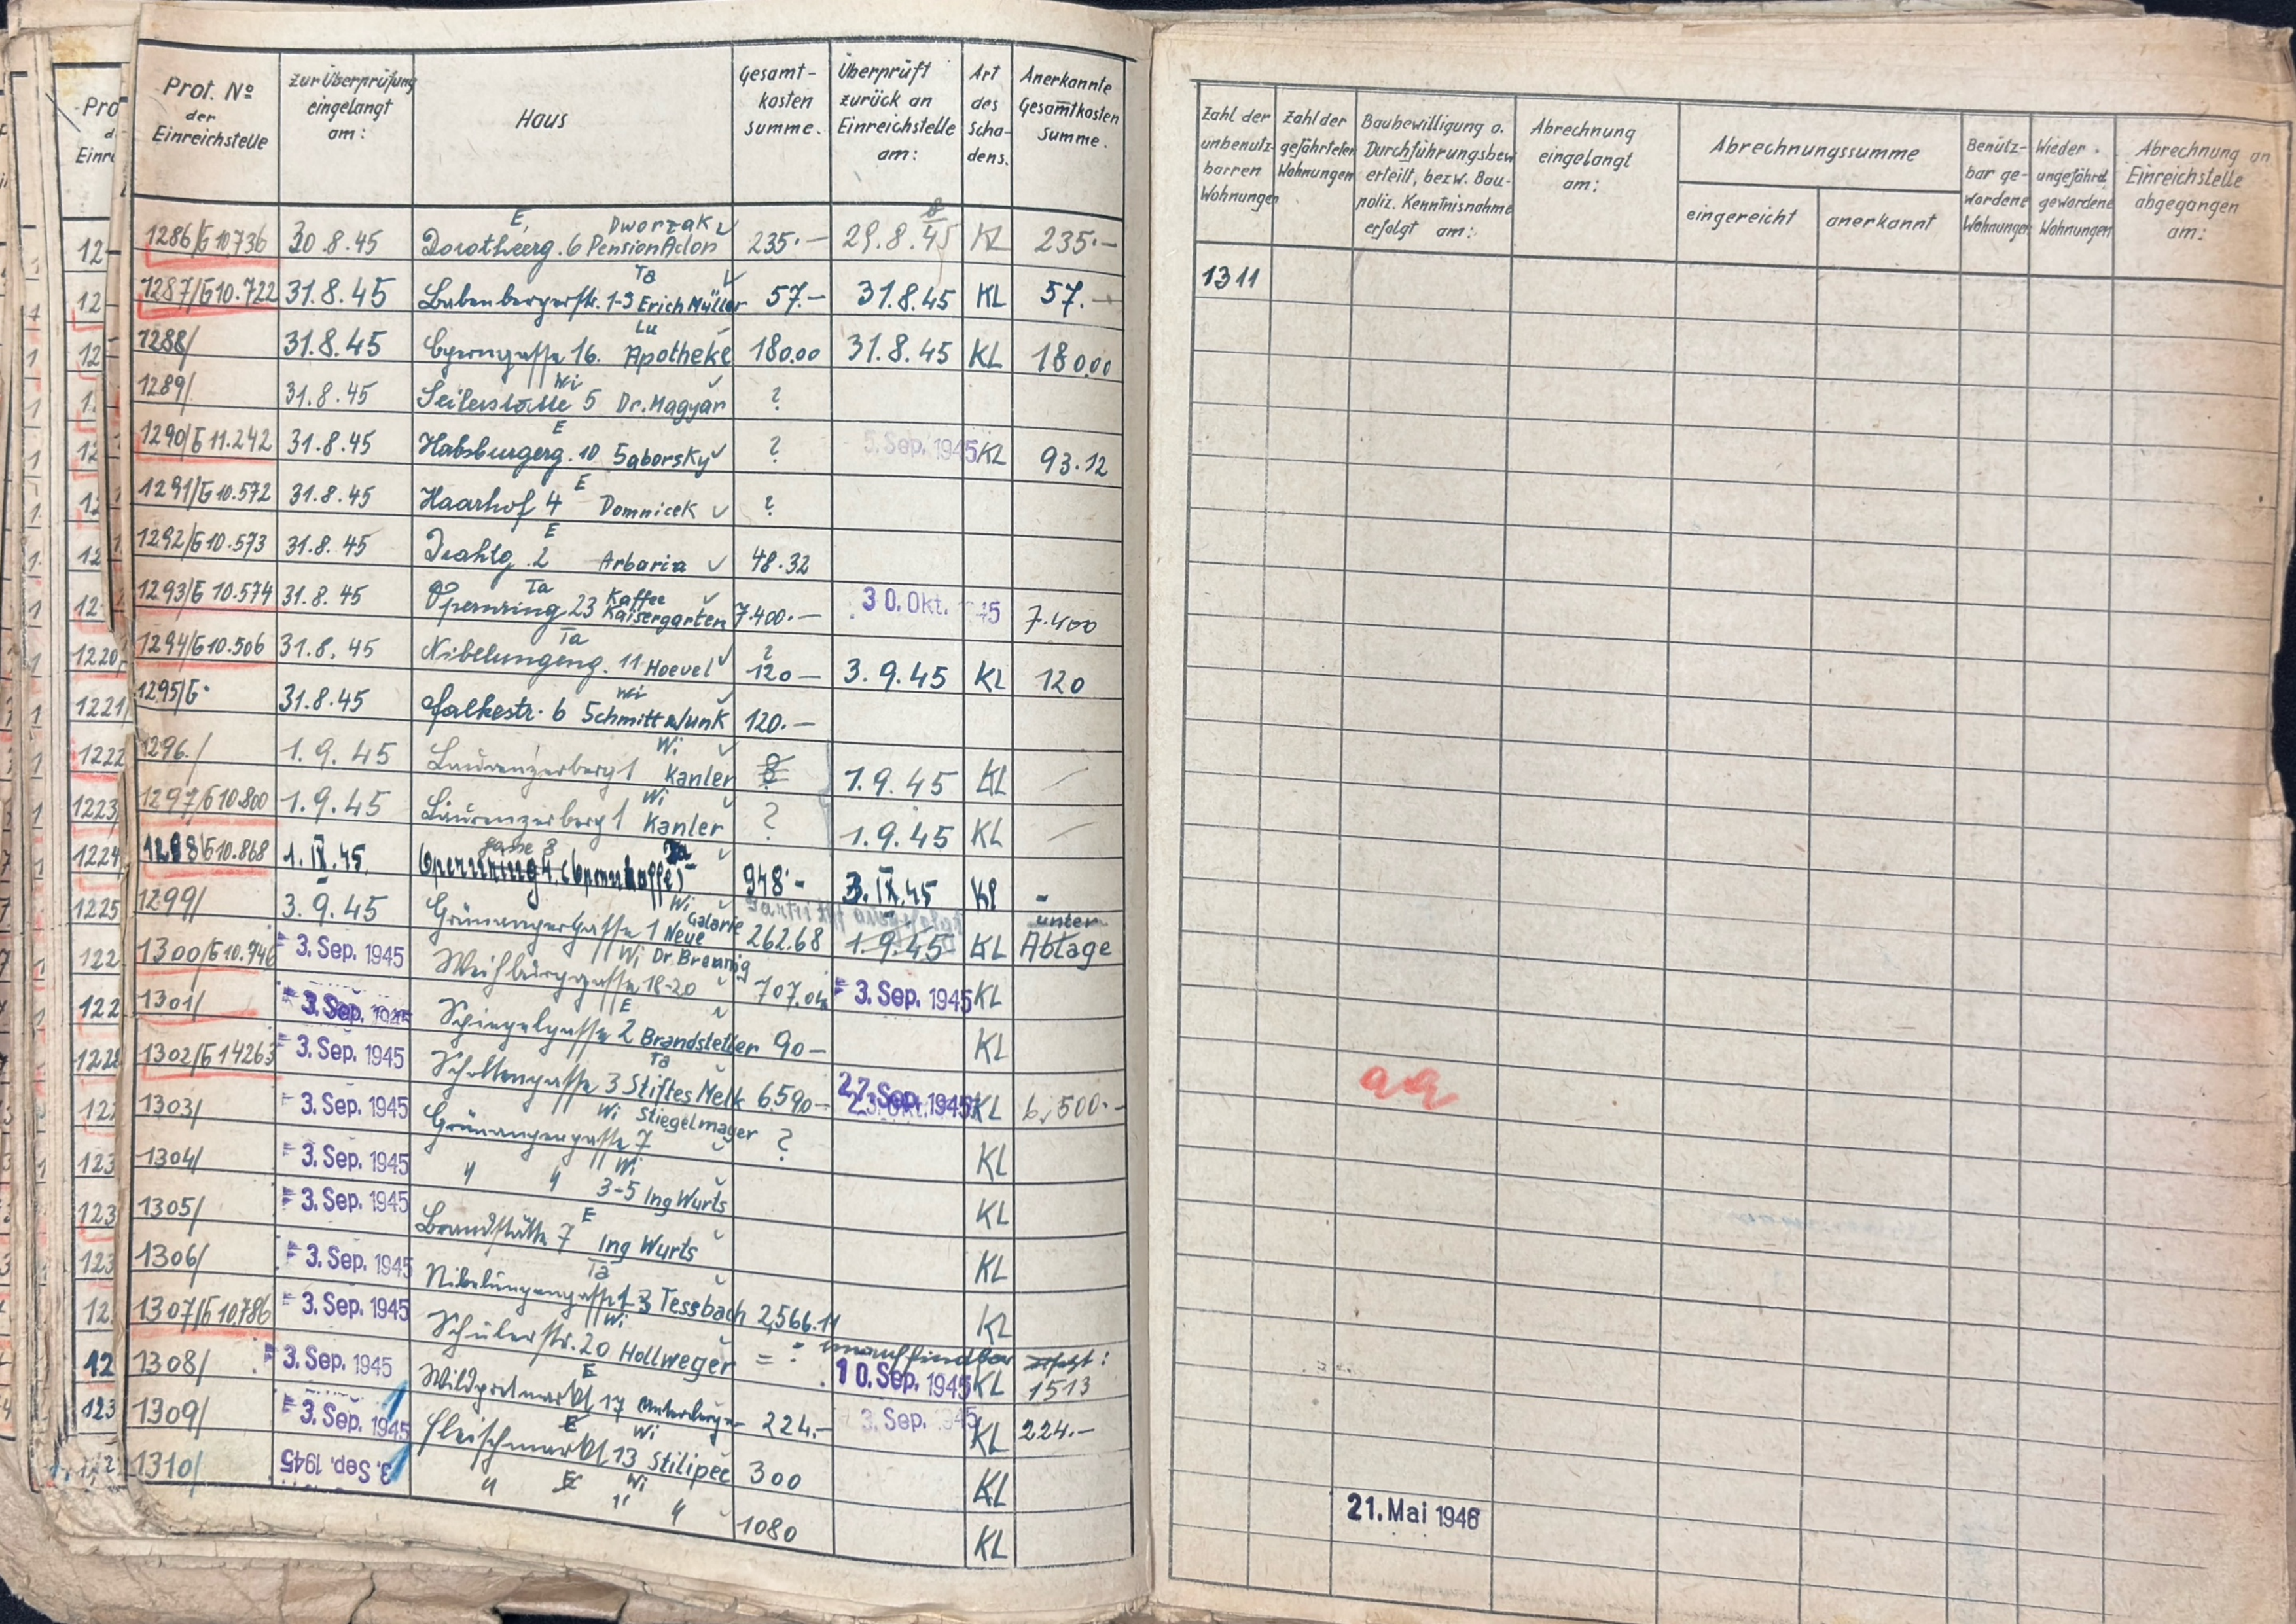 Prot. No der Einreichstelle | zur Überprüfung eingelangt am: | Haus | Gesamt-kosten summe. | Überprüft zurück an Einreichstelle am: | Art des Scha-dens. | Anerkannte Gesamtkosten Summe.
1286/G 10,736 30.8.45 Dorotheerg. 6 E, Dworzak Pension Aclon 235.— 29.8.45 KL 235.—
1287/G 10.722 31.8.45 Babenbergerstr. 1-3 Ta Erich Müller 57.— 31.8.45 KL 57.—
1288/ 31.8.45 16. Lu Apotheke 180.00 31.8.45 KL 180.00
1289/ 31.8.45 Seilerstätte 5 Wi Dr. Magyar ?
1290/G 11.242 31.8.45 Habsburgerg. 10 E Saborsky ? 5. Sep. 1945 KL 93.12
1291/G 10.572 31.8.45 Haarhof 4 E Domnicek ?
1292/G 10.573 31.8.45 Irahtg. 2 E Arbaria 48.32
1293/G 10.574 31.8.45 Opernring 23 Ta Kaffee Kaisergarten 7.400.— 30. Okt. 1945 7.400
1294/G 10.506 31.8.45 Nibelungeng. 11 Ta Hoevel ? 120— 3.9.45 KL 120
1295/G 31.8.45 Falkestr. 6 Wi Schmitt 120.—
1296./ 1.9.45 Laurenzerberg 1 Wi Kanler 1.9.45 KL —
1297/G 10.800 1.9.45 Laurenzerberg 1 Wi Kanler ? 1.9.45 KL —
1298/G 10.868 1.IX.45. gasse 8 Ta 948.- 3.IX.45 Kl -
1299/ 3.9.45 Grünangergasse 1 Wi Neue Galarie 262.68 1.9.45 KL unter Ablage
1300/G 10.746 3. Sep. 1945 Weihburggasse 18-20 Wi Dr. Breunig 707.04 3. Sep. 1945 KL
1301/ 3. Sep. 1945 Spiegelgasse 2 E Brandstetter 90— KL
1302/G 14263 3. Sep. 1945 Schottengasse 3 Ta Stiftes Melk 6.590— 27. Sep. 1945 KL 6,500.-
1303/ 3. Sep. 1945 Grünangergasse 7 Wi Stiegelmayer ? KL
1304/ 3. Sep. 1945 " " 3-5 Wi Ing Wurts KL
1305/ 3. Sep. 1945 Brandstätte 7 E Ing Wurts KL
1306/ 3. Sep. 1945 Nibelungengasse 1-3 Ta Tessbach 2,566.11 KL
1307/G 10.786 3. Sep. 1945 Schülerstr. 20 Wi Hollweger = unauffindbar 10. Sep. 1945 KL 1513
1308/ 3. Sep. 1945 Wildpretmarkt 17 E 224.— 3. Sep. 1945 KL 224.—
1309/ 3. Sep. 1945 Fleischmarkt 13 E Wi Stilipec 300 KL
1310/ 3. Sep. 1945 " E Wi " " 1080 KL
Zahl der unbenutz-barren Wohnungen | Zahl der gefährteten Wohnungen | Baubewilligung o. Durchführungsbew. erteilt, bezw. Bau-poliz. Kenntnisnahme erfolgt am: | Abrechnung eingelangt am: | Abrechnungssumme | eingereicht | anerkannt | Benütz-bar ge-wordene Wohnungen | Wieder ungefährd. gewordene Wohnungen | Abrechnung an Einreichstelle abgegangen am:
1311
aa
21. Mai 1946
Pro
Einre
1220
1221
1222
1223
1224
1225
122
122
1228